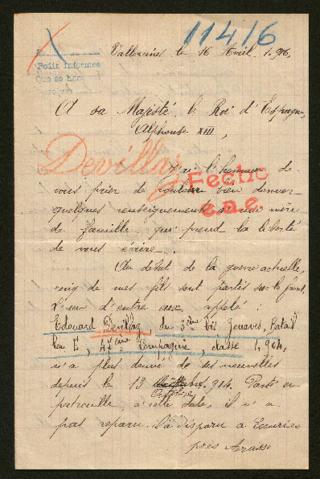 11416
Pedir Informes
Que se hace
Vallauris le 16 Avril 1916,
A sa Majesté le Roi d'Espagne,
Alphonse XIII,
Devillaz
Fecho
e.a.e.
J'ai l'honneur de
vous prier de vouloir bien donner
quelques renseignements à une mère
de famille qui prend la liberté
de vous écrire.
Au début de la guerre actuelle,
cinq de mes fils sont partis sur le front.
L'un d'entre eux, appelé:
Edouard Devillaz du 3ème bis Zouaves, Batail
lon F, 47ème Compagnie, classe 1904,
n'a plus donné de ses nouvelles
depuis le 13 Octobre 1914. Parti en
patrouille, à cette date, il n'a
pas reparu. Il a disparu à Ecuries
près Arras